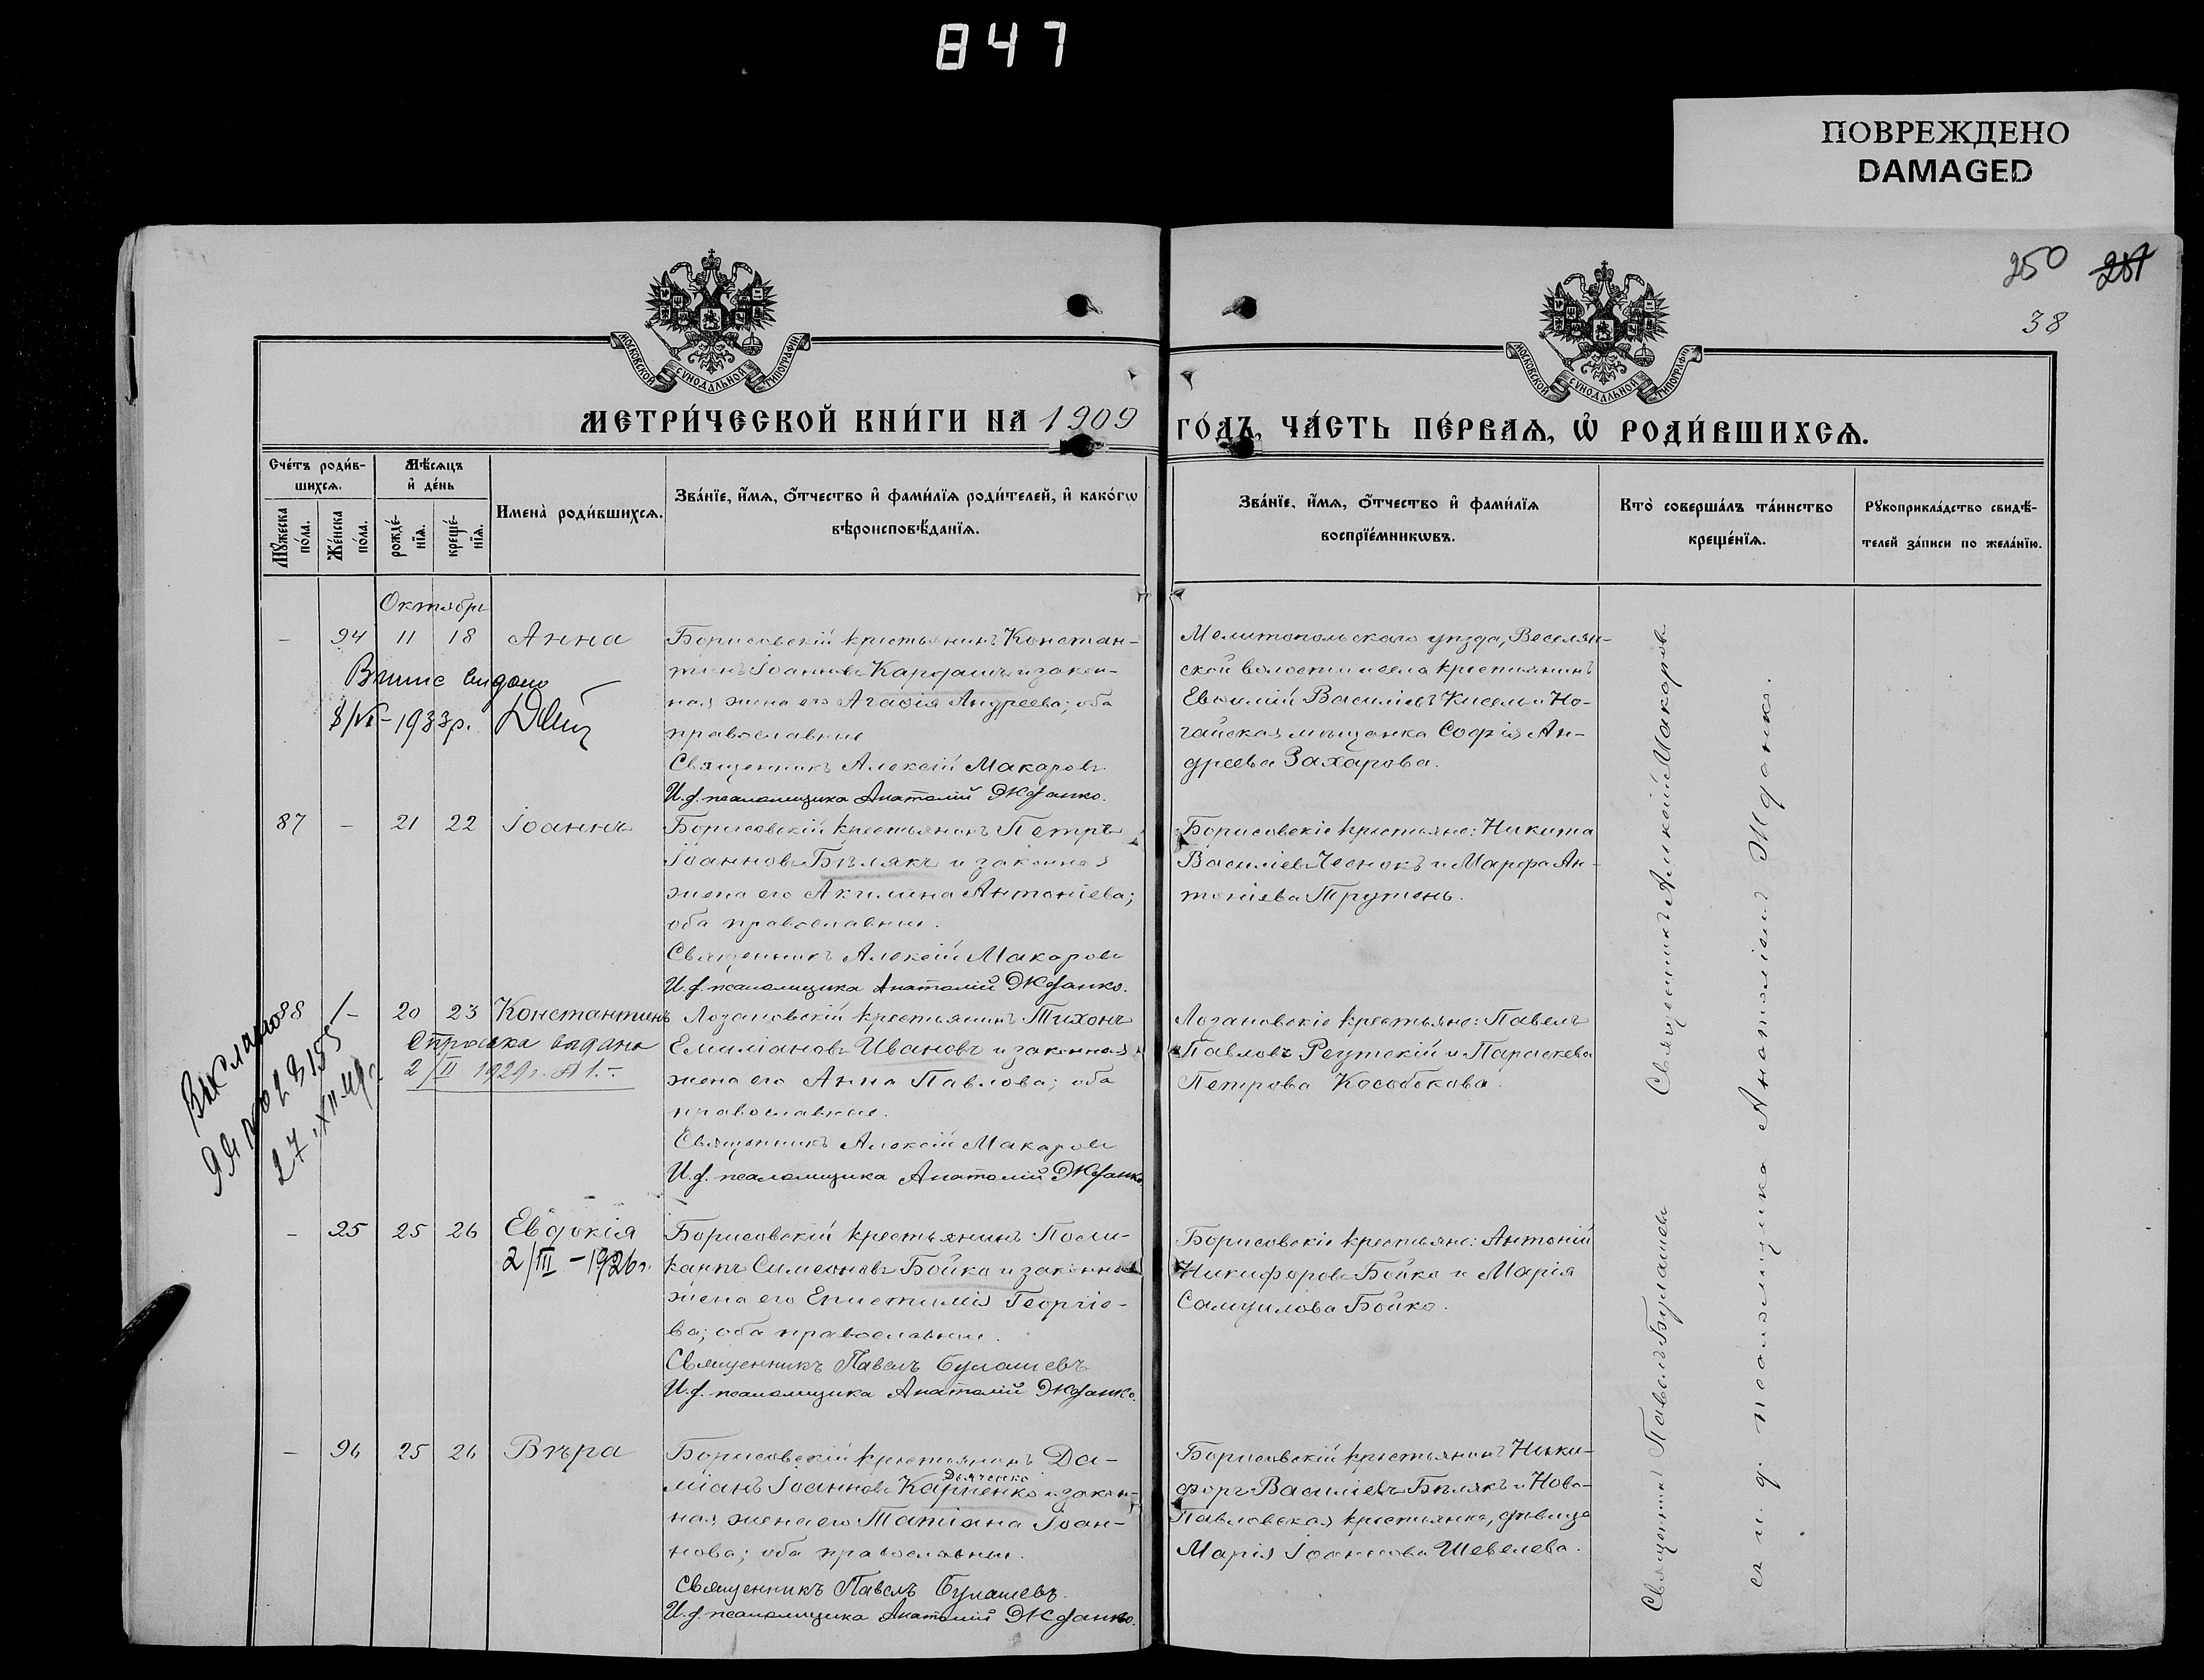 847
ПОВРЕЖДЕНО
DAMAGED
250 251
38
МОСКОВСКОЙ СѴНОДАЛЬНОЙ ТИПОГРАФІИ
МОСКОВСКОЙ СѴНОДАЛЬНОЙ ТИПОГРАФІИ
МЕТРИ́ЧЕСКОЙ КНИ́ГИ НА 1909 ГО́ДЪ, ЧА́СТЬ ПЕ́РВАѦ, Ѡ҆ РОДИ́ВШИХСѦ.
Сче́тъ роди́в-
шихсѧ.
Мѣ́сѧцъ
и҆ де́нь
Мꙋ́жеска
по́ла.
Же́нска
по́ла.
рожде́-
нїѧ.
креще́-
нїѧ.
Имена̀ роди́вшихсѧ.
Зва́нїе, и҆́мѧ, ѻ҆́тчество и҆ фами́лїѧ роди́телей, и҆ како́гѡ
вѣроисповѣ́данїѧ.
Зва́нїе, и҆́мѧ, ѻ҆́тчество и҆ фами́лїѧ
воспрїе́мникѡвъ.
Кто̀ соверша́лъ та́инство
креще́нїѧ.
Рꙋкоприкла́дство свидѣ́-
телей за́писи по жела́нїю.
Октябрь
— 94 11 18 Анна
Борисовскій крестьянинъ Констан-
тинъ Іоанновъ Кардашъ и закон-
ная жена его Агаѳія Андреева; оба
православные
Священникъ Алексій Макаровъ
И. д. псаломщика Анатолій Жданко.
Мелитопольскаго уѣзда, Веселян-
ской волости и села крестьянинъ
Евѳимій Василіевъ Кисель и Но-
гайская мѣщанка Софія Ан-
дреева Захарова.
Витис видано
8/VI-1933р.
87 — 21 22 Іоаннъ
Борисовскій крестьянинъ Петръ
Іоанновъ Бѣлякъ и законная
жена его Акилина Антоніева;
оба православные.
Священникъ Алексій Макаровъ
И. д. псаломщика Анатолій Жданко.
Борисовскіе крестьяне: Никита
Василіевъ Чеснокъ и Марфа Ан-
тоніева Трутень.
88 — 20 23 Константинъ
Справка выдана
2/II 1929г. № 1.—
27.XII
Лозановскій крестьянинъ Тихонъ
Емиліановъ Ивановъ и законная
жена его Анна Павлова; оба
православные.
Священникъ Алексій Макаровъ
И. д. псаломщика Анатолій Жданко
Лозановскіе крестьяне: Павелъ
Павловъ Реутскій и Параскева
Петрова Кособокова.
— 25 25 26 Евдокія
2/III-1926г.
Борисовскій крестьянинъ Поли-
карпъ Симеоновъ Бойко и законная
жена его Епистимія Георгіе-
ва; оба православные.
Священникъ Павелъ Булашевъ
И. д. псаломщика Анатолій Жданко.
Борисовскіе крестьяне: Антоній
Никифоровъ Бойко и Марія
Самуилова Бойко.
— 96 25 26 Вѣра
Борисовскій крестьянинъ Да-
Дьяченко
міанъ Іоанновъ Карпенко и закон-
ная жена его Татіана Іоан-
нова; оба православные.
Священникъ Павелъ Булашевъ.
И. д. псаломщика Анатолій Жданко.
Борисовскій крестьянинъ Ники-
форъ Василіевъ Бѣлякъ и Ново-
Павловская крестьянка, дѣвица
Марія Іоаннова Шевелева.
Священникъ Алексій Макаровъ
Священникъ Павелъ Булашевъ
съ и. д. псаломщика Анатоліемъ Жданко.